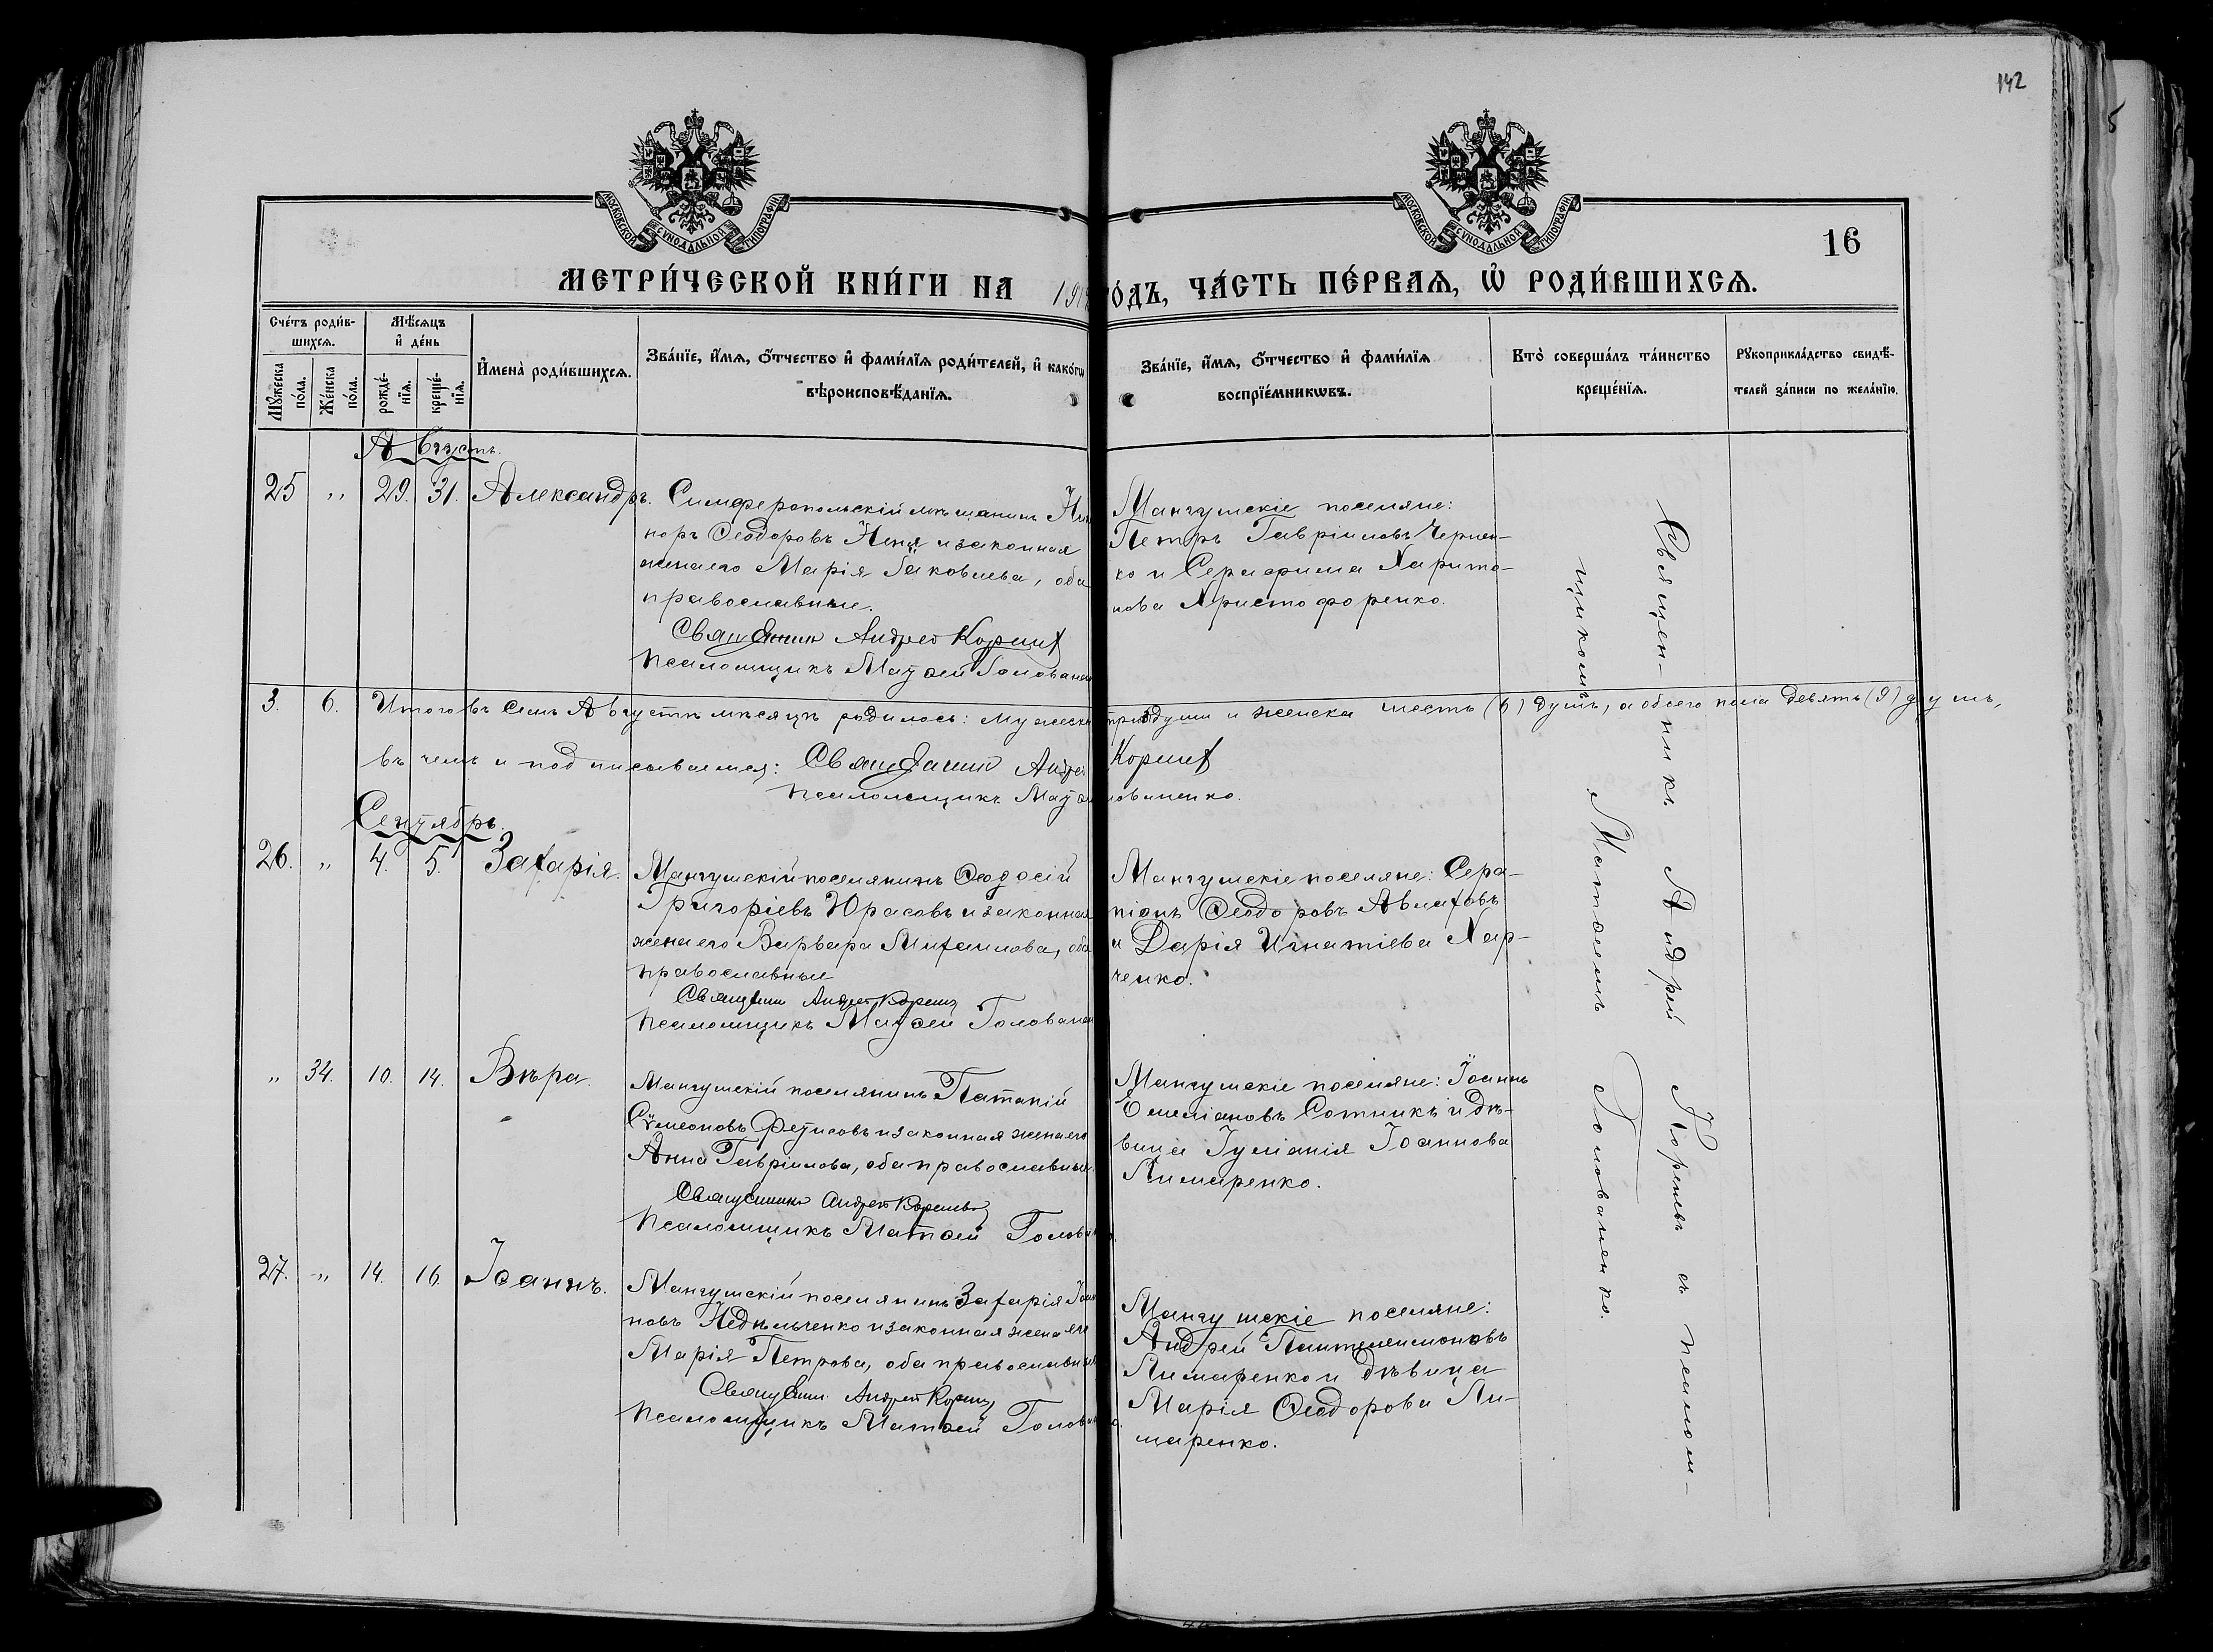 142
5
МОСКОВСКОЙ СУНОДАЛЬНОЙ ТИПОГРАФІИ
МОСКОВСКОЙ СУНОДАЛЬНОЙ ТИПОГРАФІИ
16
МЕТРИ́ЧЕСКОЙ КНИ́ГИ НА 191 ГО́ДЪ, ЧА́СТЬ ПЕ́РВАѦ, Ѡ҆ РОДИ́ВШИХСѦ.
Сче́тъ роди́в-
шихсѧ.
Мꙋ́жеска по́ла.
Же́нска по́ла.
Мѣ́сѧцъ
и҆ де́нь
рожде́-
нїѧ.
креще́-
нїѧ.
И҆мена̀ роди́вшихсѧ.
Зва́нїе, и҆́мѧ, ѻ҆́тчество и҆ фами́лїѧ роди́телей, и҆ како́гѡ
вѣроисповѣ́данїѧ.
Зва́нїе, и҆́мѧ, ѻ҆́тчество и҆ фами́лїѧ
воспрїе́мникѡвъ.
Кто̀ соверша́лъ та́инство
креще́нїѧ.
Рꙋкоприкла́дство свидѣ́-
телей за́писи по жела́нїю.
Августъ.
25 " 29. 31. Александръ.
Симферопольскій мѣщанинъ
норъ Ѳеодоровъ Неня и законная
жена его Марія Іаковлева, оба
православные.
Священник Андрей Корнев
Псаломщикъ Матѳей Голованен
Мангушскіе поселяне:
Петръ Гавріиловъ Чернен-
ко и Серафима Харито-
нова Христофоренко.
3. 6. Итого въ семъ Августѣ мѣсяцѣ родилось: мужеска три души и женска шесть (6) душъ, а обоего пола девять (9) душъ,
въ чемъ и подписываемся: Священник Андрей Корнев
Псаломщикъ Матѳ ованенко.
Сентябрь.
26. " 4. 5. Захарія.
Мангушскій поселянинъ Ѳеодосій
Григоріевъ Юрасовъ и законная
жена его Варвара Михаилова, оба
православные
Священник Андрей Корнев
Псаломщикъ Матѳей Голованен
Мангушскіе поселяне: Сера-
піонъ Ѳеодоровъ Авлаховъ
и Дарія Игнатіева Хар-
ченко.
" 34. 10. 14. Вѣра.
Мангушскій поселянинъ Патапій
Сѵмеоновъ Фетисовъ и законная жена его
Анна Гавріилова, оба православные.
Священникъ Андрей Корнев
Псаломщикъ Матѳей Голова
Мангушскіе поселяне: Іоаннъ
Емеліановъ Сотникъ и дѣ-
вица Іуліанія Іоаннова
Лимаренко.
27. " 14. 16. Іоаннъ.
Мангушскій поселянинъ Захарія Іоан
новъ Недѣльченко и законная жена его
Марія Петрова, оба православные
Священ. Андрей Корнев
Псаломщикъ Матѳей Голова
Мангушскіе поселяне:
Андрей Пантелеимоновъ
Лимаренко и дѣвица
Марія Ѳеодорова Ли-
маренко.
Священ-никъ Андрей Корневъ съ псалом-
щикомъ Матѳеемъ Голованенко.